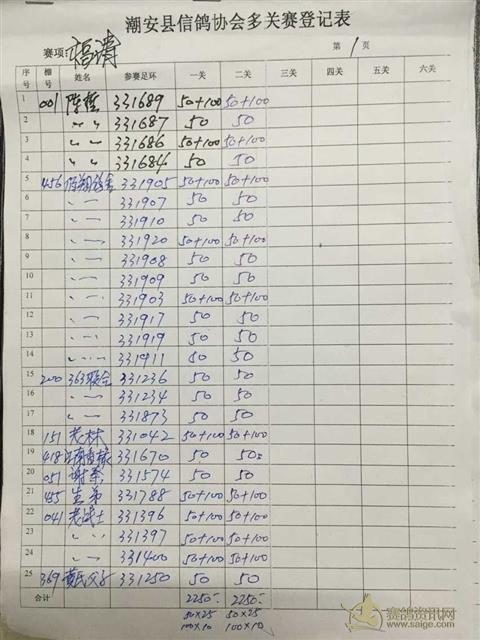 潮安县信鸽协会多关赛登记表
赛项: 福清 第 1 页
序号 棚号 姓名 参赛足环 一关 二关 三关 四关 五关 六关
1 001 陈 331689 50+100 50+100
2 〃 〃 331687 50 50
3 〃 〃 331686 50+100 50+100
4 〃 〃 331684 50 50
5 456 331905 50+100 50+100
6 〃 — 331907 50 50
7 〃 — 331910 50 50
8 〃 — 331920 50+100 50+100
9 〃 — 331908 50 50
10 〃 — 331909 50 50
11 〃 — 331903 50+100 50+100
12 〃 — 331917 50 50
13 〃 — 331919 50 50
14 〃 — 331911 50 50
15 200 363联合 331236 50 50
16 〃 — 331234 50 50
17 〃 — 331873 50 50
18 151 老林 331042 50+100 50+100
19 418 331670 50 50
20 051 谢 331574 50 50
21 455 弟 331788 50+100 50+100
22 041 老战士 331396 50+100 50+100
23 〃 — 331397 50+100 50+100
24 〃 — 331400 50+100 50+100
25 369 黄氏父子 331250 50 50
合计 2250- 2250-
50×25 50×25
100×10 100×10
赛鸽资讯网
www.saige.com